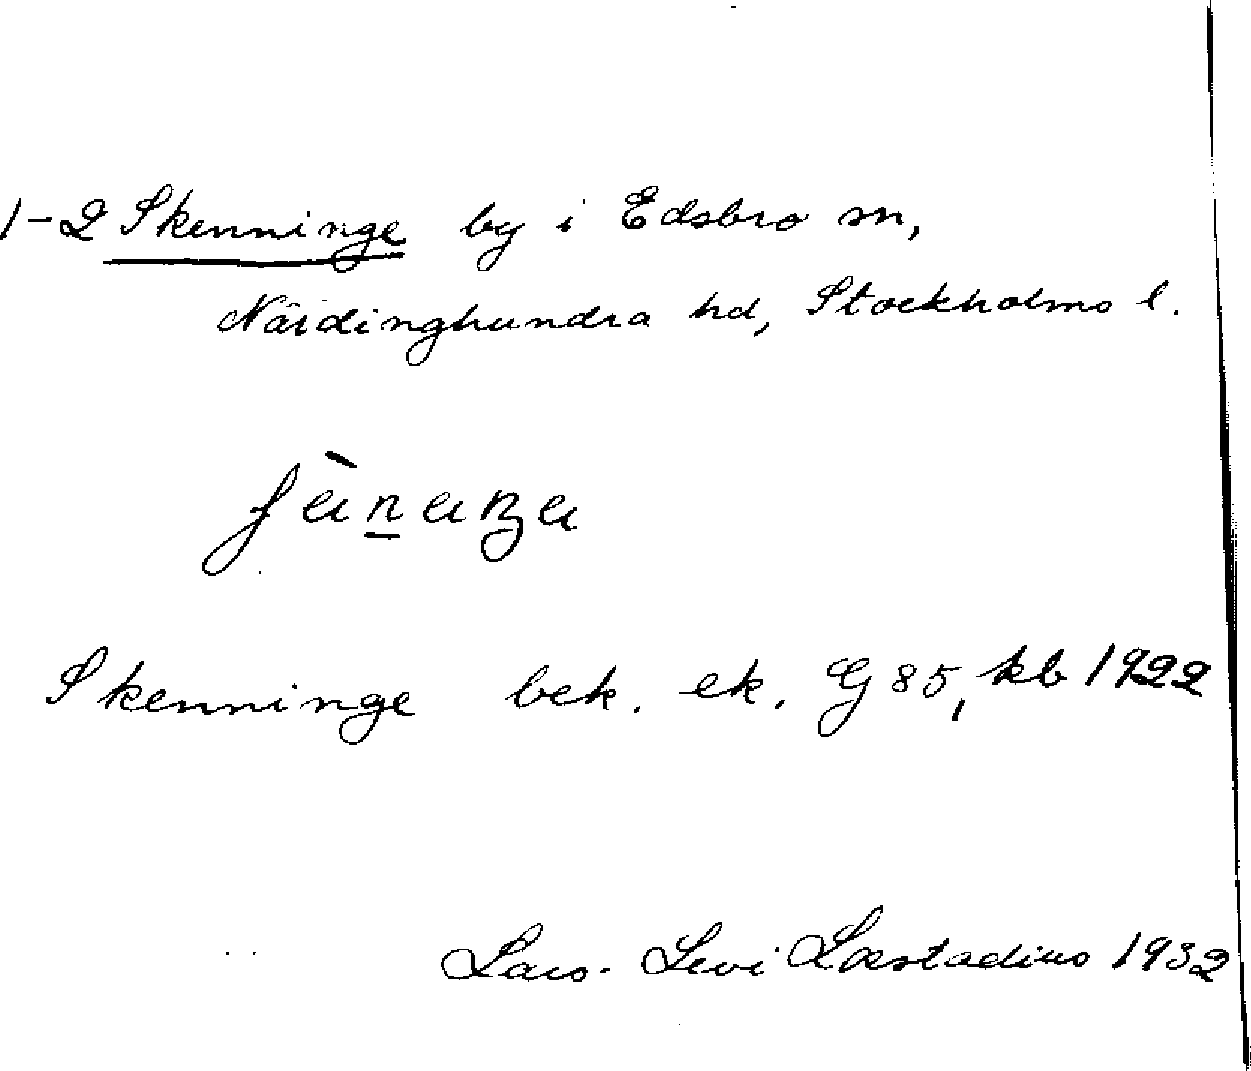 1-2 Skenninge by i Edsbro sn,
Närdinghundra hd, Stockholms l.
Skenninge bek. ek. G 85, kb 1922
Lars-Levi Læstadius 1932